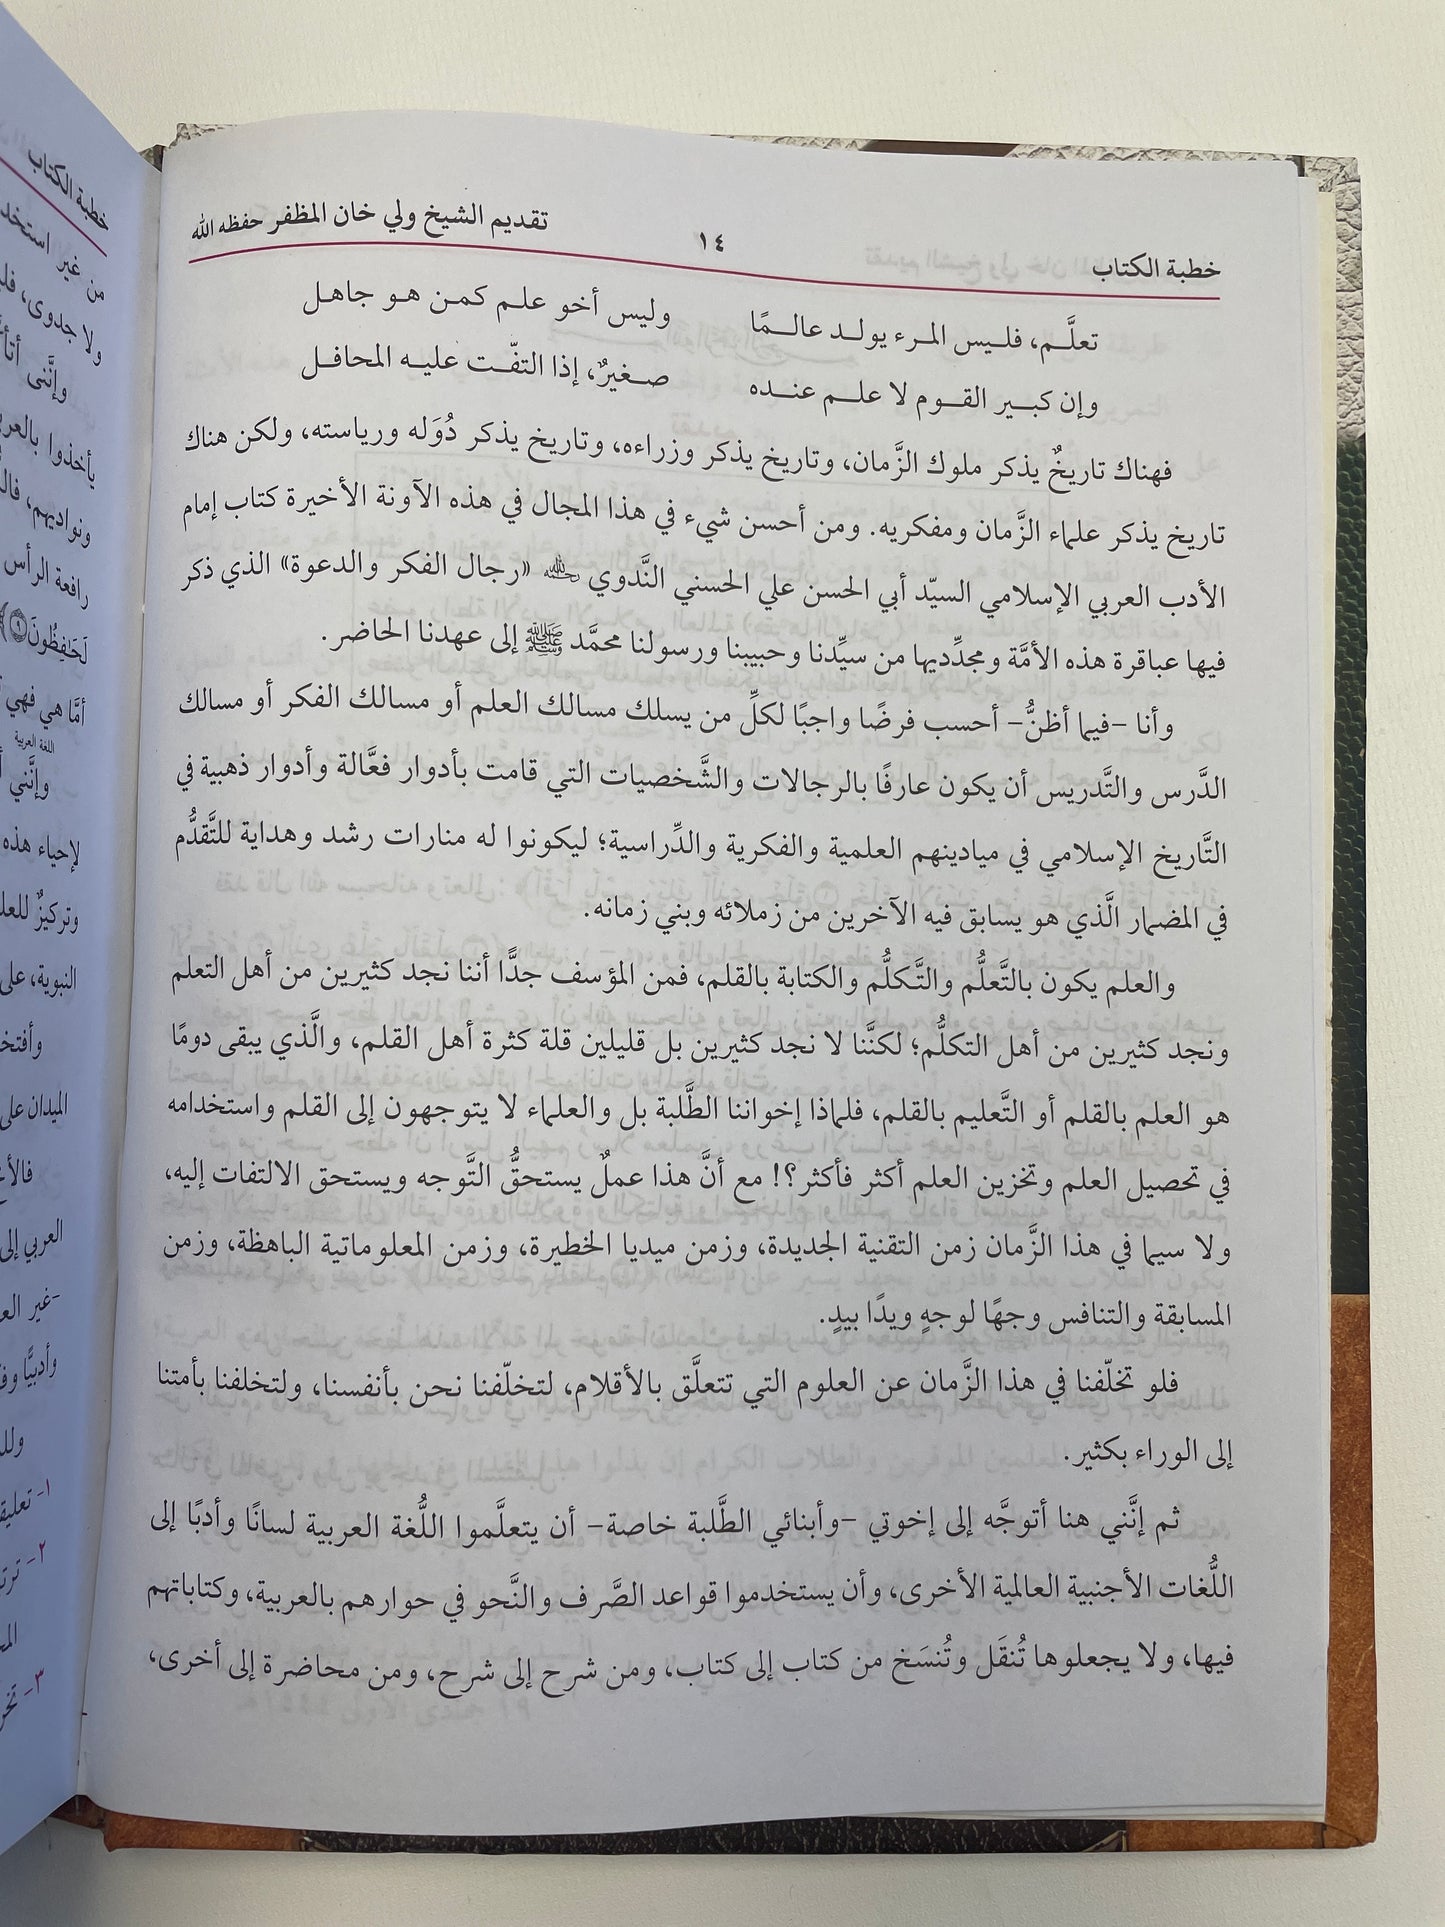 خطبة الكتاب ١٤ تقديم الشيخ ولي خان المظفر حفظه الله
تعلَّـم، فلـيس المـرء يولـد عالـمًا وليس أخو علم كمن هو جاهل
وإن كبـير القـوم لا علـم عنـده صـغيرٌ، إذا التفّـت عليـه المحافـل
فهناك تاريخٌ يذكر ملوك الزَّمان، وتاريخ يذكر وزراءه، وتاريخ يذكر دُوَله ورياسته، ولكن هناك
تاريخ يذكر علماء الزَّمان ومفكريه. ومن أحسن شيء في هذا المجال في هذه الآونة الأخيرة كتاب إمام
الأدب العربي الإسلامي السيّد أبي الحسن علي الحسني النَّدوي رحمه الله «رجال الفكر والدعوة» الذي ذكر
فيها عباقرة هذه الأمَّة ومجدِّديها من سيِّدنا وحبيبنا ورسولنا محمَّد ﷺ إلى عهدنا الحاضر.
وأنا –فيما أظنُّ– أحسب فرضًا واجبًا لكلِّ من يسلك مسالك العلم أو مسالك الفكر أو مسالك
الدَّرس والتَّدريس أن يكون عارفًا بالرجالات والشَّخصيات التي قامت بأدوار فعَّالة وأدوار ذهبية في
التَّاريخ الإسلامي في ميادينهم العلمية والفكرية والدِّراسية؛ ليكونوا له منارات رشد وهداية للتَّقدُّم
في المضمار الَّذي هو يسابق فيه الآخرين من زملائه وبني زمانه.
والعلم يكون بالتَّعلُّم والتَّكلُّم والكتابة بالقلم، فمن المؤسف جدًّا أننا نجد كثيرين من أهل التعلم
ونجد كثيرين من أهل التكلُّم؛ لكنَّنا لا نجد كثيرين بل قليلين قلة كثرة أهل القلم، والَّذي يبقى دومًا
هو العلم بالقلم أو التَّعليم بالقلم، فلماذا إخواننا الطَّلبة بل والعلماء لا يتوجهون إلى القلم واستخدامه
في تحصيل العلم وتخزين العلم أكثر فأكثر؟! مع أنَّ هذا عملٌ يستحقُّ التَّوجه ويستحق الالتفات إليه،
ولا سيما في هذا الزَّمان زمن التقنية الجديدة، وزمن ميديا الخطيرة، وزمن المعلوماتية الباهظة، وزمن
المسابقة والتنافس وجهًا لوجهٍ ويدًا بيدٍ.
فلو تخلّفنا في هذا الزَّمان عن العلوم التي تتعلَّق بالأقلام، لتخلّفنا نحن بأنفسنا، ولتخلفنا بأمتنا
إلى الوراء بكثير.
ثم إنَّني هنا أتوجَّه إلى إخوتي –وأبنائي الطَّلبة خاصة– أن يتعلَّموا اللُّغة العربية لسانًا وأدبًا إلى
اللُّغات الأجنبية العالمية الأخرى، وأن يستخدموا قواعد الصَّرف والنَّحو في حوارهم بالعربية، وكتاباتهم
فيها، ولا يجعلوها تُنقَل وتُنسَخ من كتاب إلى كتاب، ومن شرح إلى شرح، ومن محاضرة إلى أخرى،
خطبة الكتاب
من غير
ولا جدوى،
وإنَّني
يأخذوا
ونواديهم،
رافعة الرأس
لَحَافِظُونَ
أمَّا هي فهي
اللغة العربية
وإنَّني
لإحياء هذه
وتركيزٌ
النبوية، على
الميدان على
العربي إلى
-غير
وأدبيًّا
١-
٢-
٣-